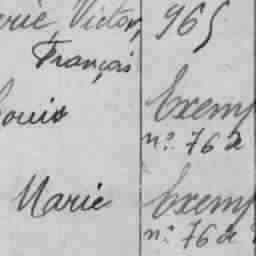 Victor, 965
François
Louis Exemp
n.º 76 de
Marie Exemp
n.º 76 de